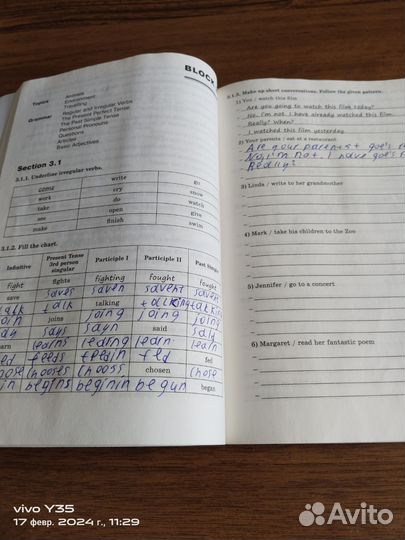 BLOCK
Topics
Animals
Environment
Travelling
Grammar
Regular and Irregular Verbs
The Present Perfect Tense
The Past Simple Tense
Personal Pronouns
Questions
Articles
Basic Adjectives
Section 3.1
3.1.1. Underline irregular verbs.
come write go
work cry snow
take do watch
see open give
make finish swim
3.1.2. Fill the chart.
Infinitive Present Tense 3rd person singular Participle I Participle II Past
fight fights fighting fought fought
save saves saven
talk talking talking
joins joing joing joing
says sayn said
learns learn learn
feeds fed fed
chooses chosen chose
begins beginin begun began
3.1.3. Make up short conversations. Follow the given pattern.
1) You / watch this film
– Are you going to watch this film today?
– No, I'm not. I have already watched this film.
– Really? When?
– I watched this film yesterday.
2) Your parents / eat at a restaurant
Are your parents goe's
No, I'm not. I have goe's
Really?
3) Linda / write to her grandmother
4) Mark / take his children to the Zoo
5) Jennifer / go to a concert
6) Margaret / read her fantastic poem
vivo Y35
17 февр. 2024 г., 11:29
Avito